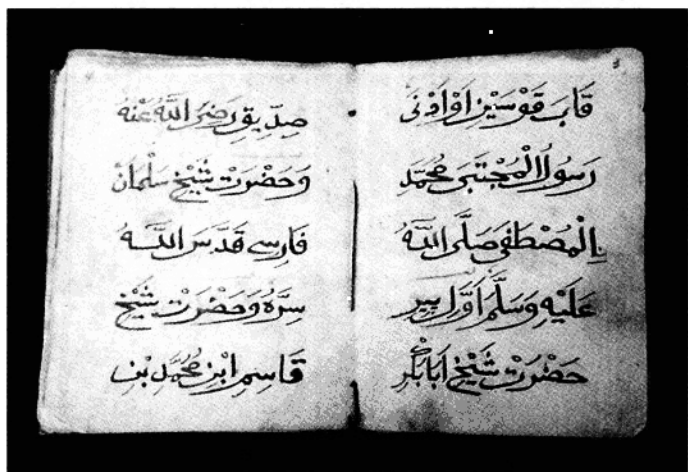 قَابَ قَوْسَيْنِ اَوْ اَدْنَى
رَسُولُ الْمُجْتَبَى مُحَمَّدِ
الْمُصْطَفَى صَلَّى اللّٰهُ
عَلَيْهِ وَسَلَّمَ اَوَّلْ پِيرِ
حَضْرَتْ شَيْخْ اَبَابَكْرِ
صِدِّيقِ رَضِىَ اللّٰهُ عَنْهُ
وَحَضْرَتْ شَيْخْ سَلْمَانْ
فَارِسِى قَدَّسَ اللّٰهُ
سِرَّهُ وَحَضْرَتْ شَيْخْ
قَاسِمِ ابْنِ مُحَمَّدِ بْنِ